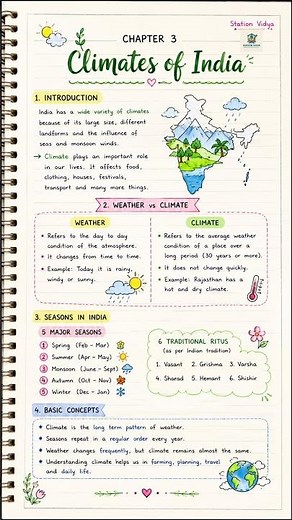 Station Vidya
CHAPTER 3
Climates of India
1. INTRODUCTION
India has a wide variety of climates
because of its large size, different
landforms and the influence of
seas and monsoon winds.
→ Climate plays an important role
in our lives. It affects food,
clothing, houses, festivals,
transport and many more things.
2. WEATHER vs CLIMATE
WEATHER
• Refers to the day to day
condition of the atmosphere.
• It changes from time to time.
• Example: Today it is rainy,
windy or sunny.
CLIMATE
• Refers to the average weather
condition of a place over a
long period (30 years or more).
• It does not change quickly.
• Example: Rajasthan has a
hot and dry climate.
3. SEASONS IN INDIA
5 MAJOR SEASONS
1 Spring (Feb - Mar)
2 Summer (Apr - May)
3 Monsoon (June - Sept)
4 Autumn (Oct - Nov)
5 Winter (Dec - Jan)
6 TRADITIONAL RITUS
(as per Indian tradition)
1. Vasant 2. Grishma 3. Varsha
4. Sharad 5. Hemant 6. Shishir
4. BASIC CONCEPTS
• Climate is the long term pattern of weather.
• Seasons repeat in a regular order every year.
• Weather changes frequently, but climate remains almost same.
• Understanding climate helps us in farming, planning, travel
and daily life.